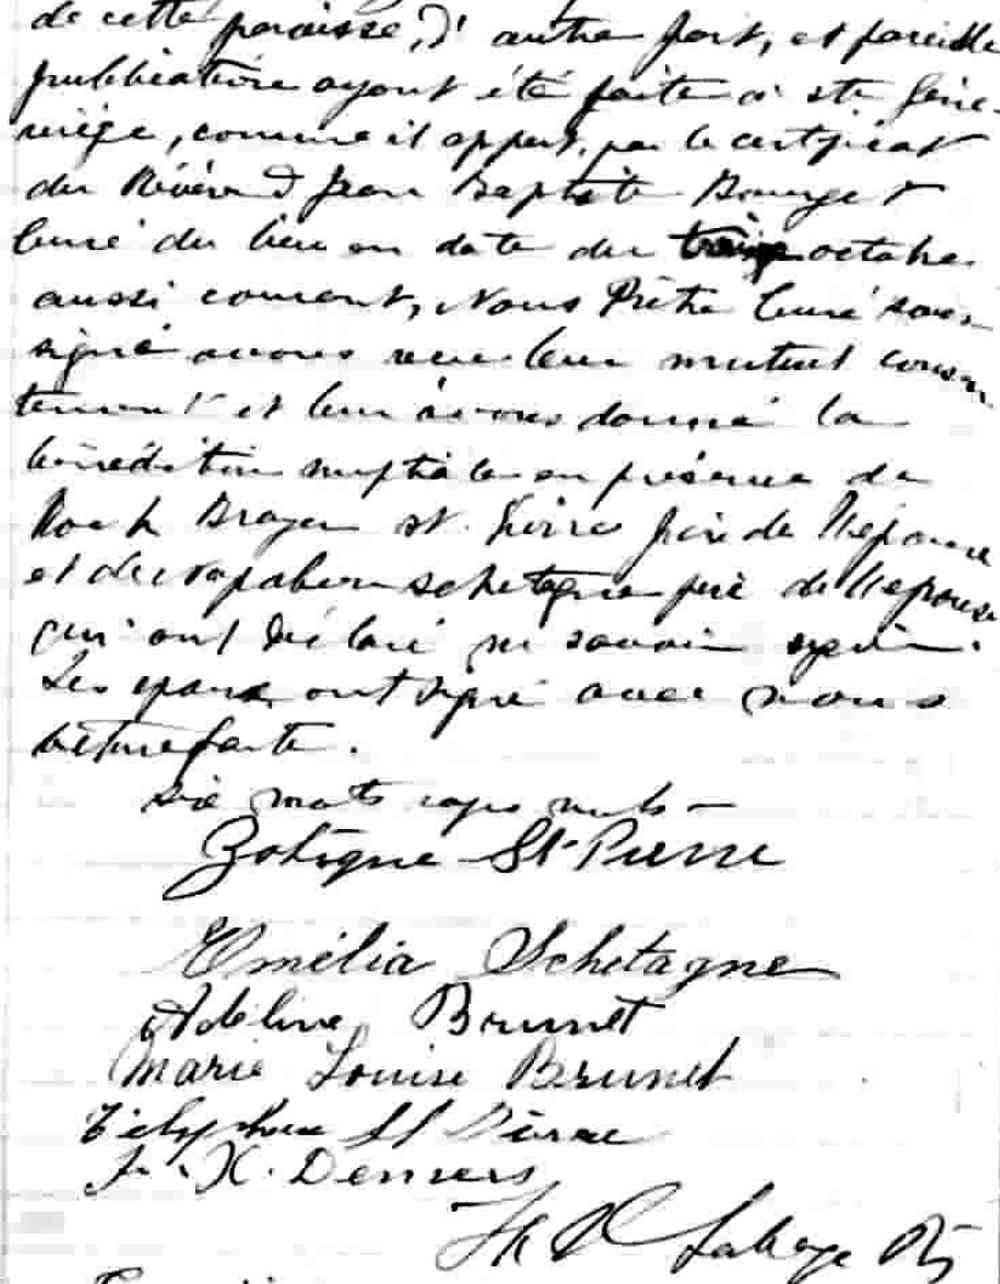 de cette paroisse, d'autre part, et pareille
publication ayant été faite à Ste Gene-
viève, comme il appert par le certificat
du Révérend Jean Baptiste Bourget
Curé du lieu en date du treize octobre
aussi courant, Nous Prêtre Curé sous-
signé avons reçu leur mutuel consen-
tement et leur avons donné la
bénédiction nuptiale en présence de
Roch Brayer St. Pierre père de l'époux
et de Schetagne père de l'épouse
qui ont déclaré ne savoir signer.
Les époux ont signé avec nous
lecture faite.
Six mots rayés nuls —
Zotique St-Pierre
Emélia Schetagne
Adéline Brunet
Marie Louise Brunet
Télesphore St Pierre
F. X. Demers
Lahaye Ptr